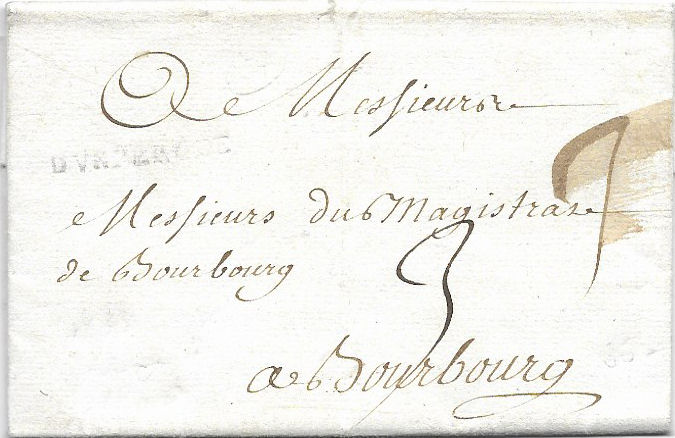 A Messieurs
DUNKERQUE
Messieurs du Magistrat
de Bourbourg
3
a Bourbourg